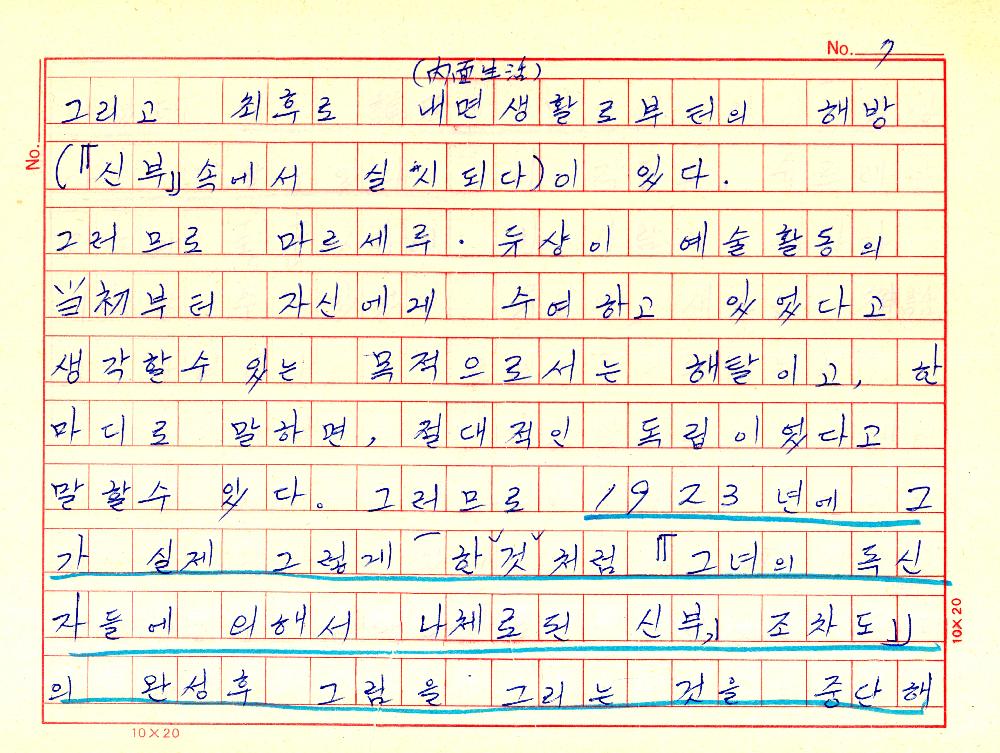 No. 7
(内面生活)
그리고 최후로 내면생활로부터의 해방
(『신부』속에서 실시되다)이 있다.
그러므로 마르세루·듀샹이 예술활동의
当初부터 자신에게 수여하고 있었다고
생각할수 있는 목적으로서는 해탈이고, 한
마디로 말하면, 절대적인 독립이었다고
말할수 있다. 그러므로 1923년에 그
가 실제 그렇게 한것처럼 『그녀의 독신
자들에 의해서 나체로된 신부, 조차도』
의 완성후 그림을 그리는 것을 중단해
No.
10×20
10×20